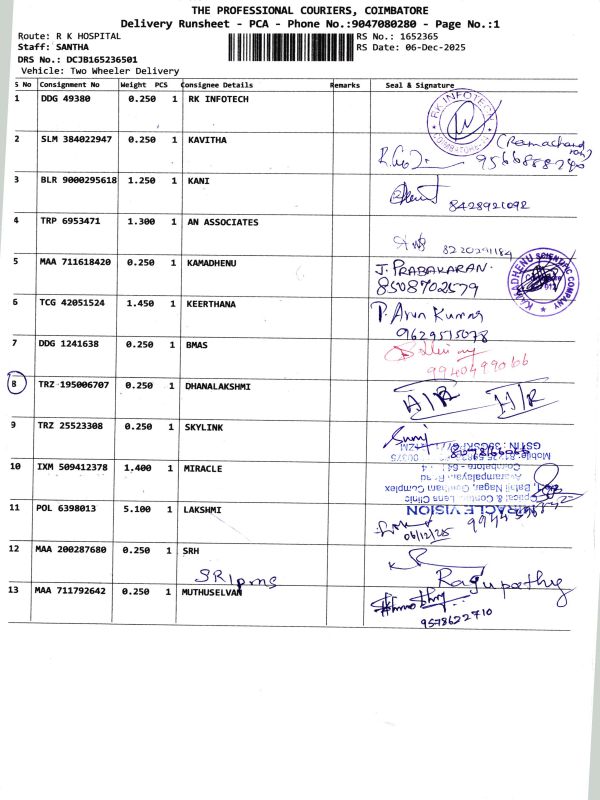 THE PROFESSIONAL COURIERS, COIMBATORE
Delivery Runsheet - PCA - Phone No.:9047080280 - Page No.:1
Route: R K HOSPITAL
RS No.: 1652365
Staff: SANTHA
RS Date: 06-Dec-2025
DRS No.: DCJB165236501
Vehicle: Two Wheeler Delivery
S No Consignment No Weight PCS Consignee Details Remarks Seal & Signature
1 DDG 49380 0.250 1 RK INFOTECH
RK INFOTECH
2 SLM 384022947 0.250 1 KAVITHA
(Ramachand
ran)
9566888240
3 BLR 9000295618 1.250 1 KANI
8428921092
4 TRP 6953471 1.300 1 AN ASSOCIATES
8220291184
5 MAA 711618420 0.250 1 KAMADHENU
J. PRABAKARAN.
8508702579
KAMADHENU SCIENTIFIC COMPANY
6 TCG 42051524 1.450 1 KEERTHANA
P. Arun Kumar
9629515078
7 DDG 1241638 0.250 1 BMAS
9940499066
8 TRZ 195006707 0.250 1 DHANALAKSHMI
H/R H/R
9 TRZ 25523308 0.250 1 SKYLINK
10 IXM 509412378 1.400 1 MIRACLE
Coimbatore
Optical & Contact Lens Clinic
MIRACLE VISION
11 POL 6398013 5.100 1 LAKSHMI
06/12/25
12 MAA 200287680 0.250 1 SRH
SRI pms
Ragupathy
13 MAA 711792642 0.250 1 MUTHUSELVAN
9578622710